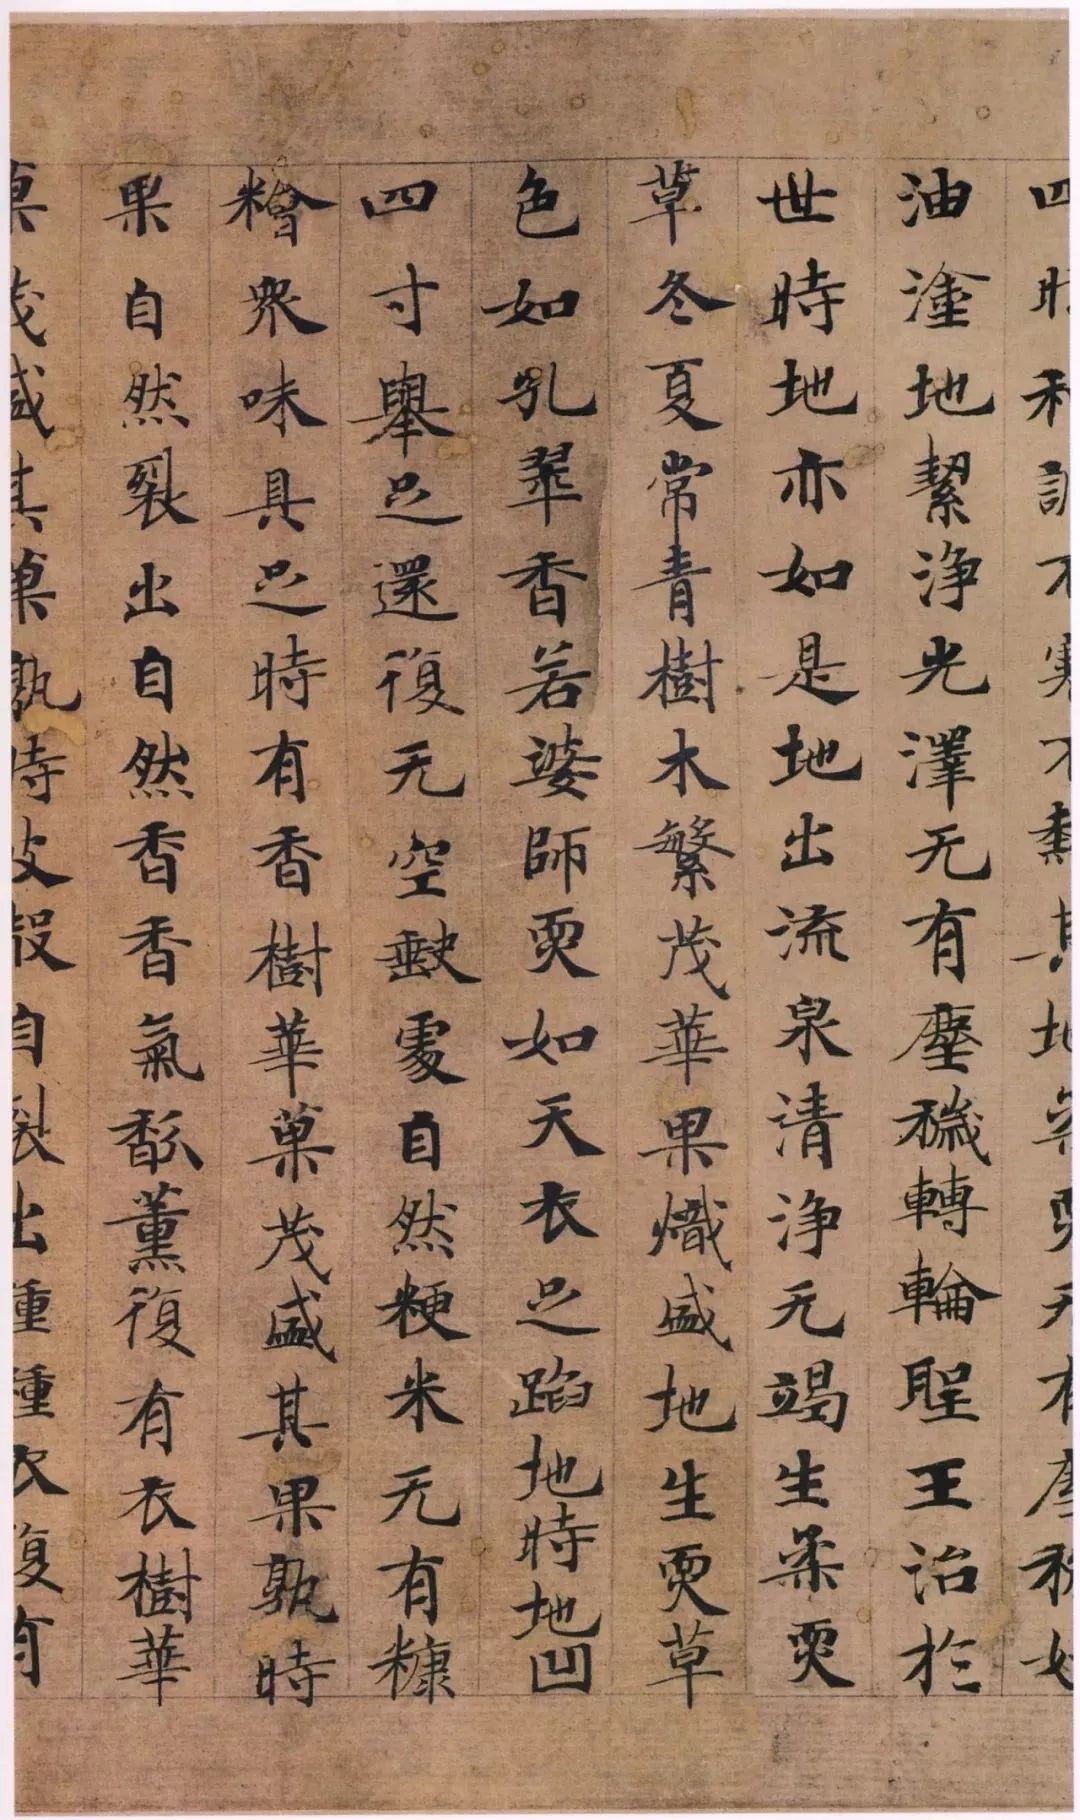 四時和調不寒不熱其地耎无有塵穢如
油塗地絜淨光澤无有塵穢轉輪聖王治於
世時地亦如是地出流泉清淨无竭生柔耎
草冬夏常青樹木繁茂華果熾盛地生耎草
色如孔翠香若婆師耎如天衣足蹈地時地凹
四寸舉足還復无空缺處自然粳米无有糠
糩衆味具足時有香樹華菓茂盛其果孰時
果自然裂出自然香香氣馚薰復有衣樹華
菓茂盛其菓孰時皮殼自裂出種種衣復有